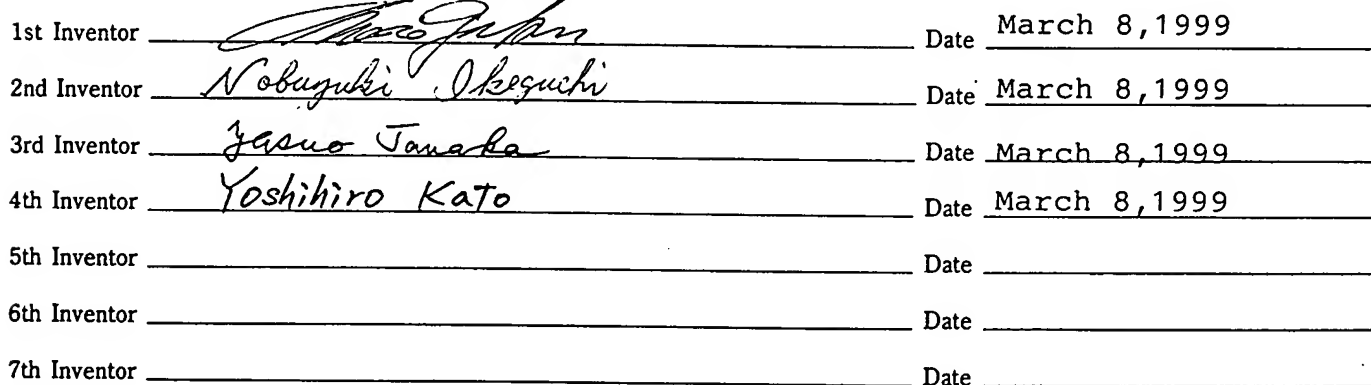 1st Inventor Date March 8,1999
2nd Inventor Nobuyuki Ikeguchi Date March 8,1999
3rd Inventor Yasuo Tanaka Date March 8,1999
4th Inventor Yoshihiro Kato Date March 8,1999
5th Inventor Date
6th Inventor Date
7th Inventor Date